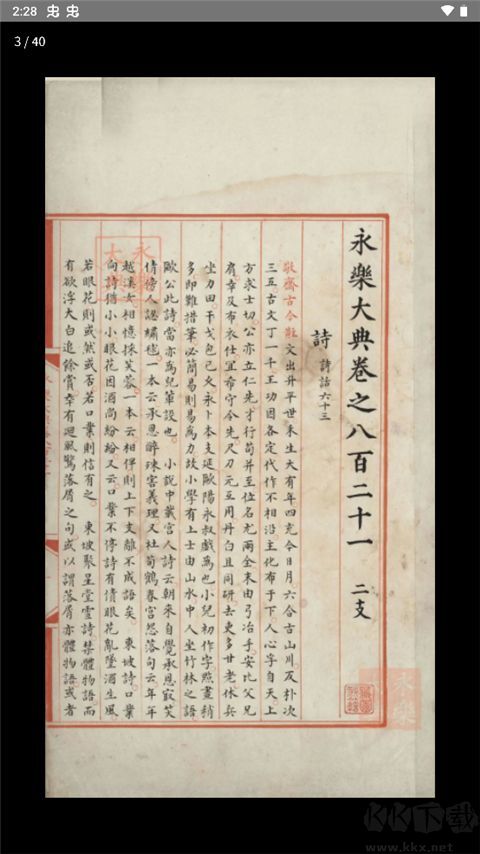 2:28
3 / 40
永樂大典卷之八百二十一 二支
詩 詩話六十三
敬齋古今黈文出升平世禾生大有年四克今日月六合古山川反朴次
三五古文丁一千王功因各定代作不相沿主化布于下人心字自天上
方求士切公亦立仁先才行苟并至位名尤兩全末由弓冶手安比父兄
肩幸及布衣仕宜希守今先尺刀元互用丹白且同研去更多廿老休兵
坐力田干戈包已久永卜本支延歐陽永叔戲為也小兒初作字點畫稍
多即難措筆必簡易則易為力故小學有上士由山水中人坐竹林之語
歐公此詩當亦為兒輩設也 小說中載宮人詩云朝來自覺承恩寂笑
倩傍人認繡毬一本云承恩醉珠宮義理又杜荀鶴春宮怨落句云年年
越溪女相憶採芙蓉一本云相伴則上下支離不成語矣 東坡詩口業
向詩猶小小眼花因酒尚紛紛又云口業不停詩有債眼花亂墜酒生風
若眼花則或然或否若口業則信有之 東坡聚星堂雪詩禁體物語而
有欲浮大白追餘賞幸有迴風驚落屑之句或以謂落屑亦體物語或者
永樂
大典
永樂
KK下载
www.kkx.net